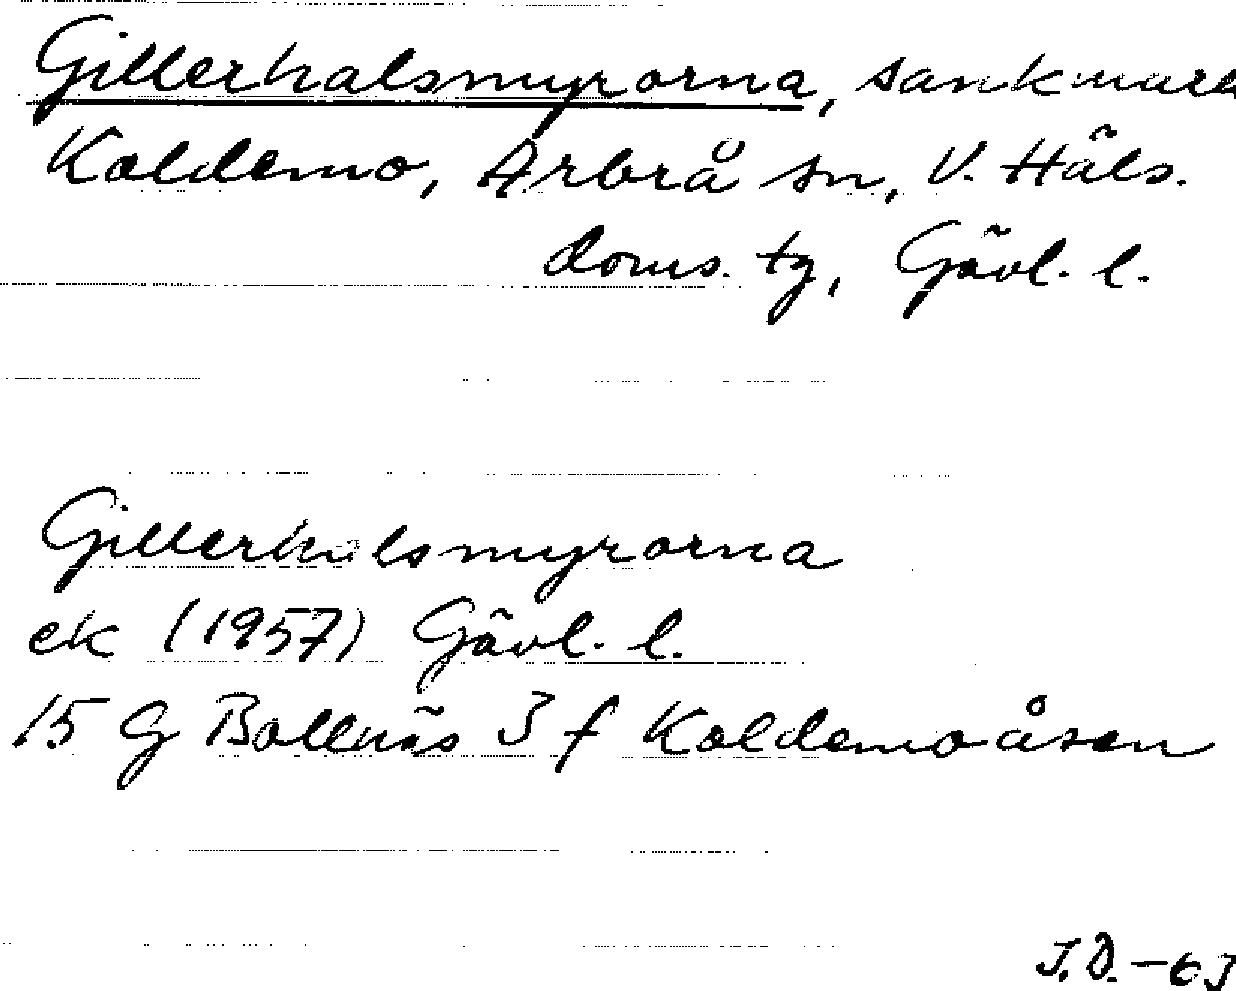 Gillerhalsmyrorna, sankmark
Koldemo, Arbrå sn, V. Häls.
doms. tg, Gävl. l.
Gillerhalsmyrorna
ek (1957) Gävl. l.
15 G Bollnäs 3 f Koldemoåsen
J.D. - 63